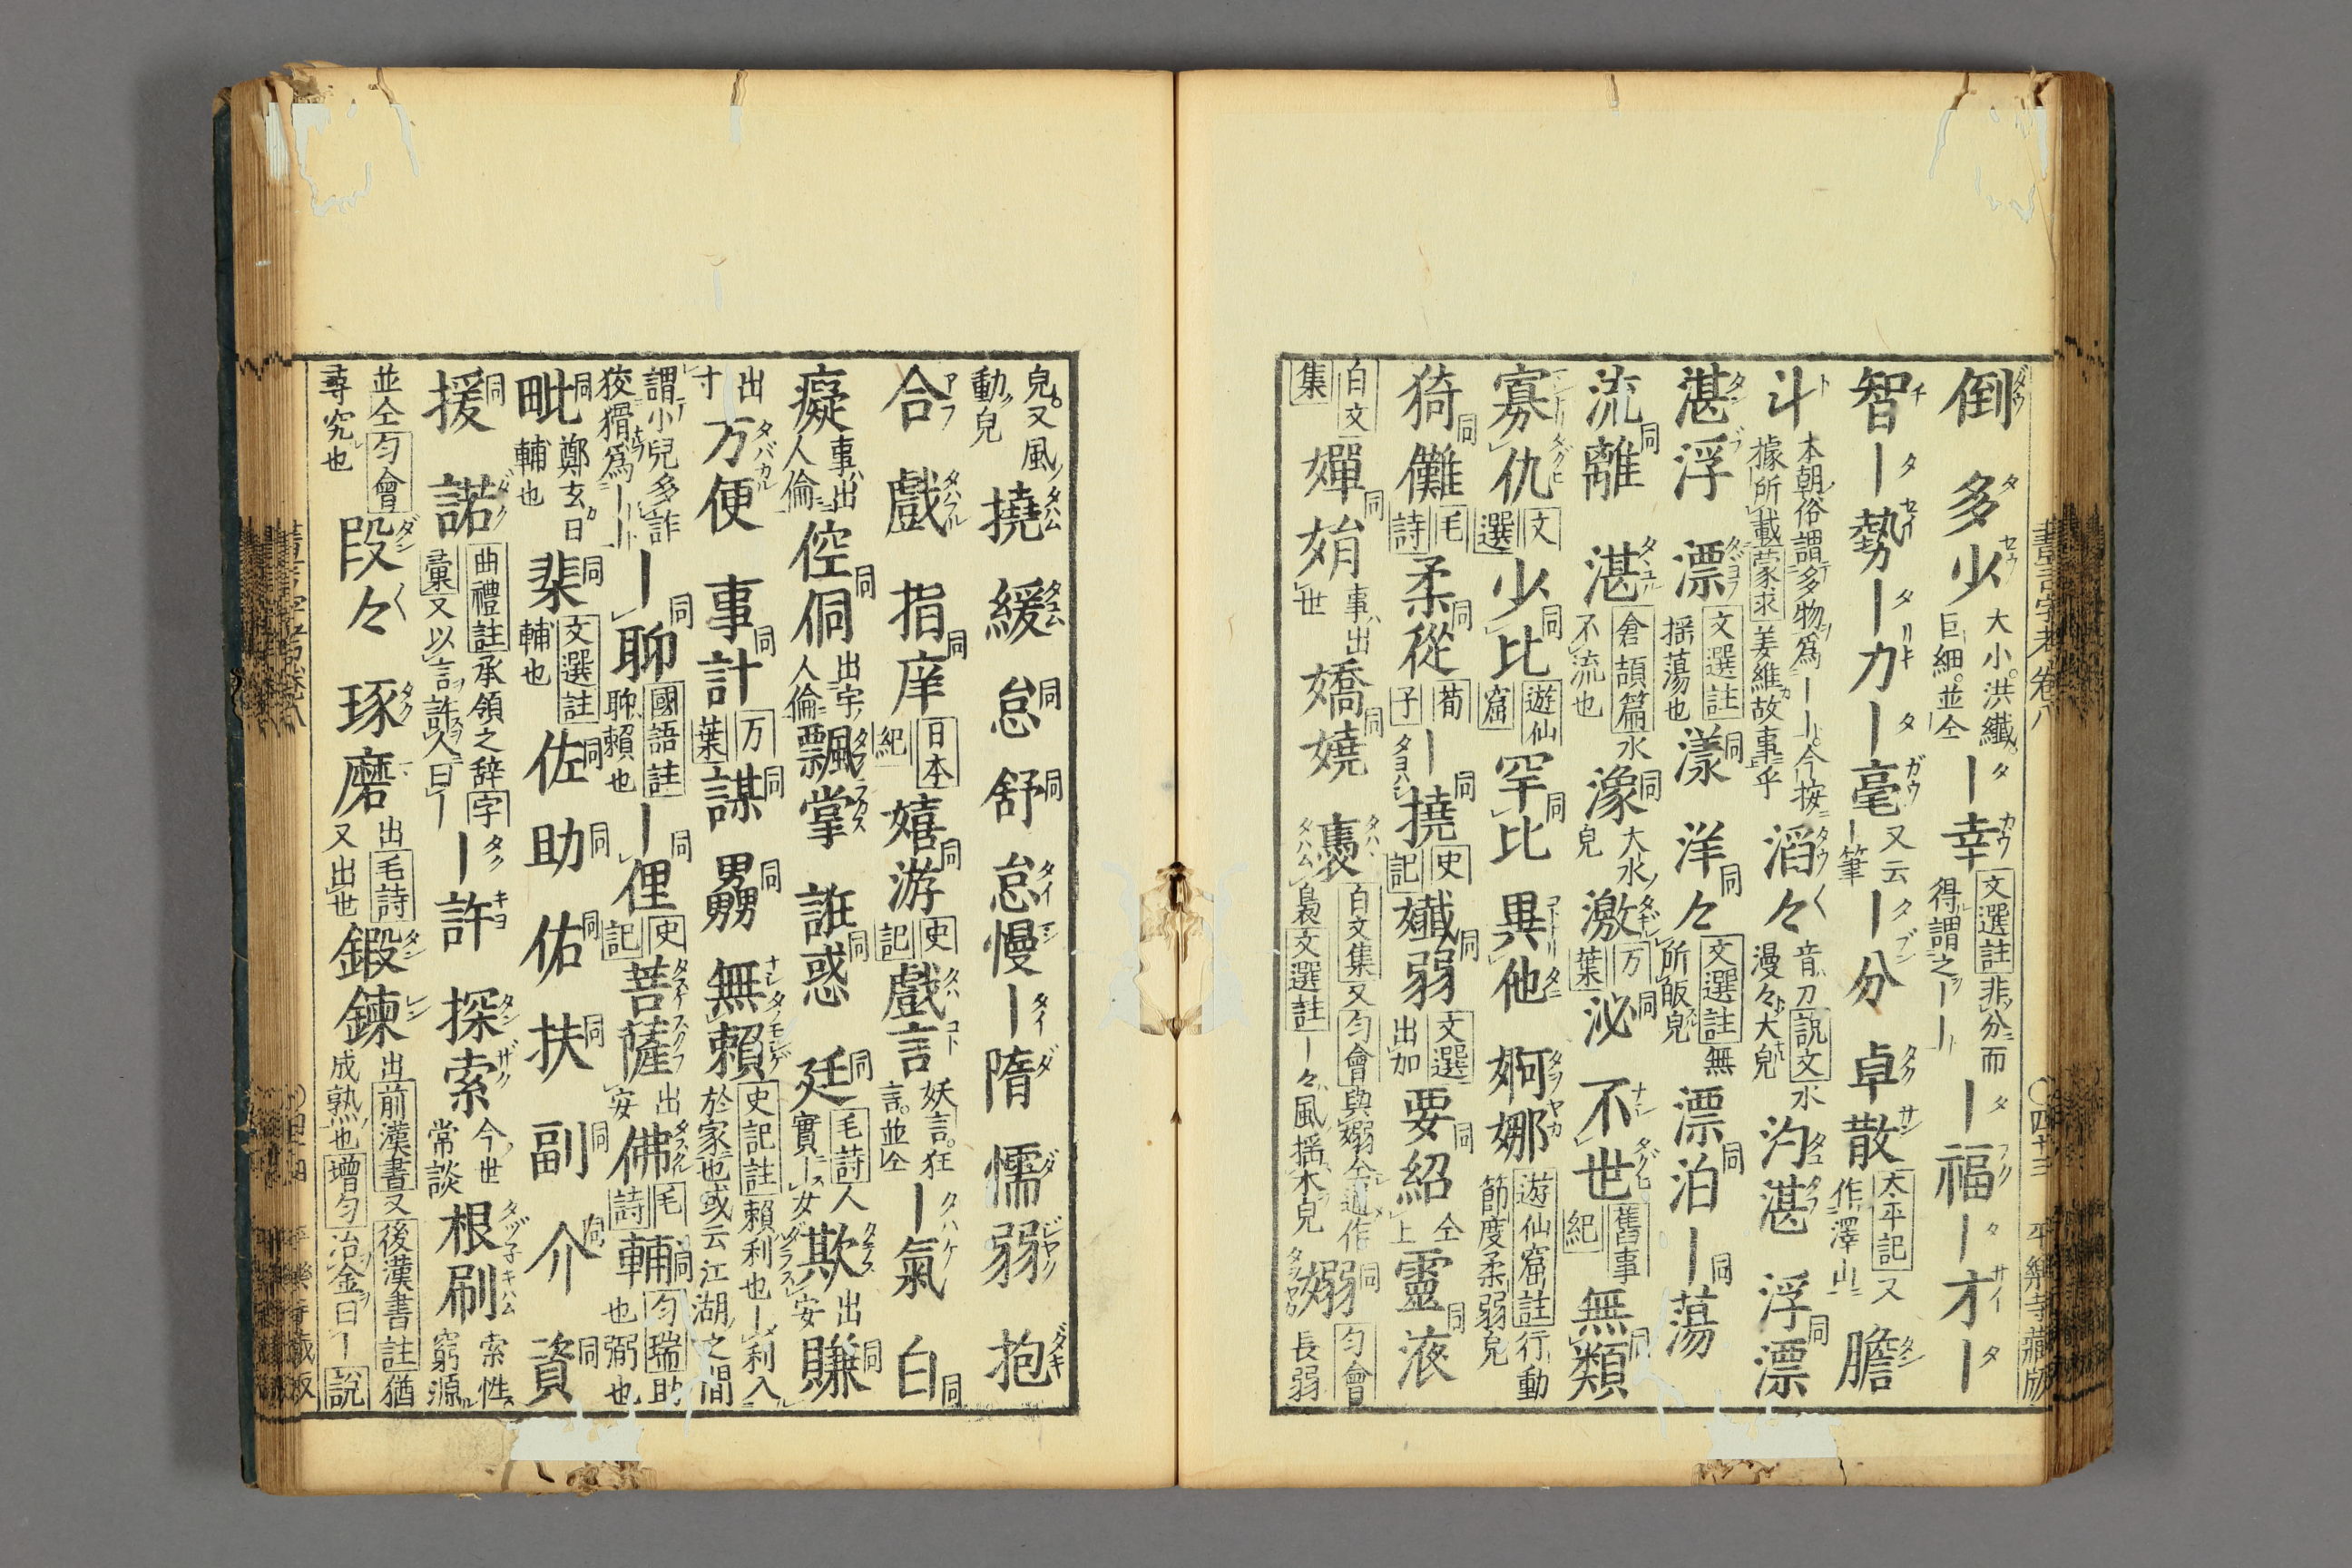 書言字考卷八 〇四十三 平樂寺藏版
倒 多少 大小。洪纖。巨細。並仝 ー幸 文選註非分而得謂之ーー ー福ー才ー
智ー勢ー力ー毫 又云ー筆 ー分 卓散 太平記又作澤山 膽
斗 本朝俗謂多物爲ーー。今按據所載蒙求姜維故事乎 滔々 音刀說文水漫々大皃 汋湛 浮漂
湛浮 漂 文選註揺蕩也 漾 洋々 文選註無所皈皃 漂泊ー蕩
流離 湛 倉頡篇水不流也 潒 大水皃 激 万葉 泌 不世 舊事紀 無類
寡仇 文選 少比 遊仙窟 罕比 異他 婀娜 遊仙窟註行動節度柔弱皃
猗儺 毛詩 柔從 荀子 ー撓 史記 孅弱 文選 要紹 仝上 靈液
白文集 嬋娟 事出世 嬌嬈 褭 白文集又勻會與嫋仝通作裊文選註ー々風揺木皃 嫋 勻會長弱
皃。又風動皃 撓 緩 怠 舒 怠慢ー隋 懦弱 抱
合 戲 指庠 日本紀 嬉游 史記 戲言 妖言。狂言。並仝 ー氣 白
癡 事出人倫 倥侗 出宇人倫 飄掌 誑惑 廷 毛詩人實ー女 欺 出安 賺
出寸 万便 事計 万葉 謀 嬲 無賴 史記註賴利也ー利入於家也或云江湖之間
謂小兒多詐狡猾爲ーー ー聊 國語註聊賴也 ー俚 史記 菩薩 出安 佛 毛詩 輔 勻瑞助也弼也
毗 鄭玄曰輔也 棐 文選註輔也 佐 助 佑 扶 副 介 資
援 諾 曲禮註承領之辞字彙又以言許人曰ー ー許 探索 今世常談 根刷 索性窮源
並仝勻會尋究也 段々 琢磨 出毛詩又出世 鍛鍊 出前漢書又後漢書註猶成熟也增勻冶金曰ー說